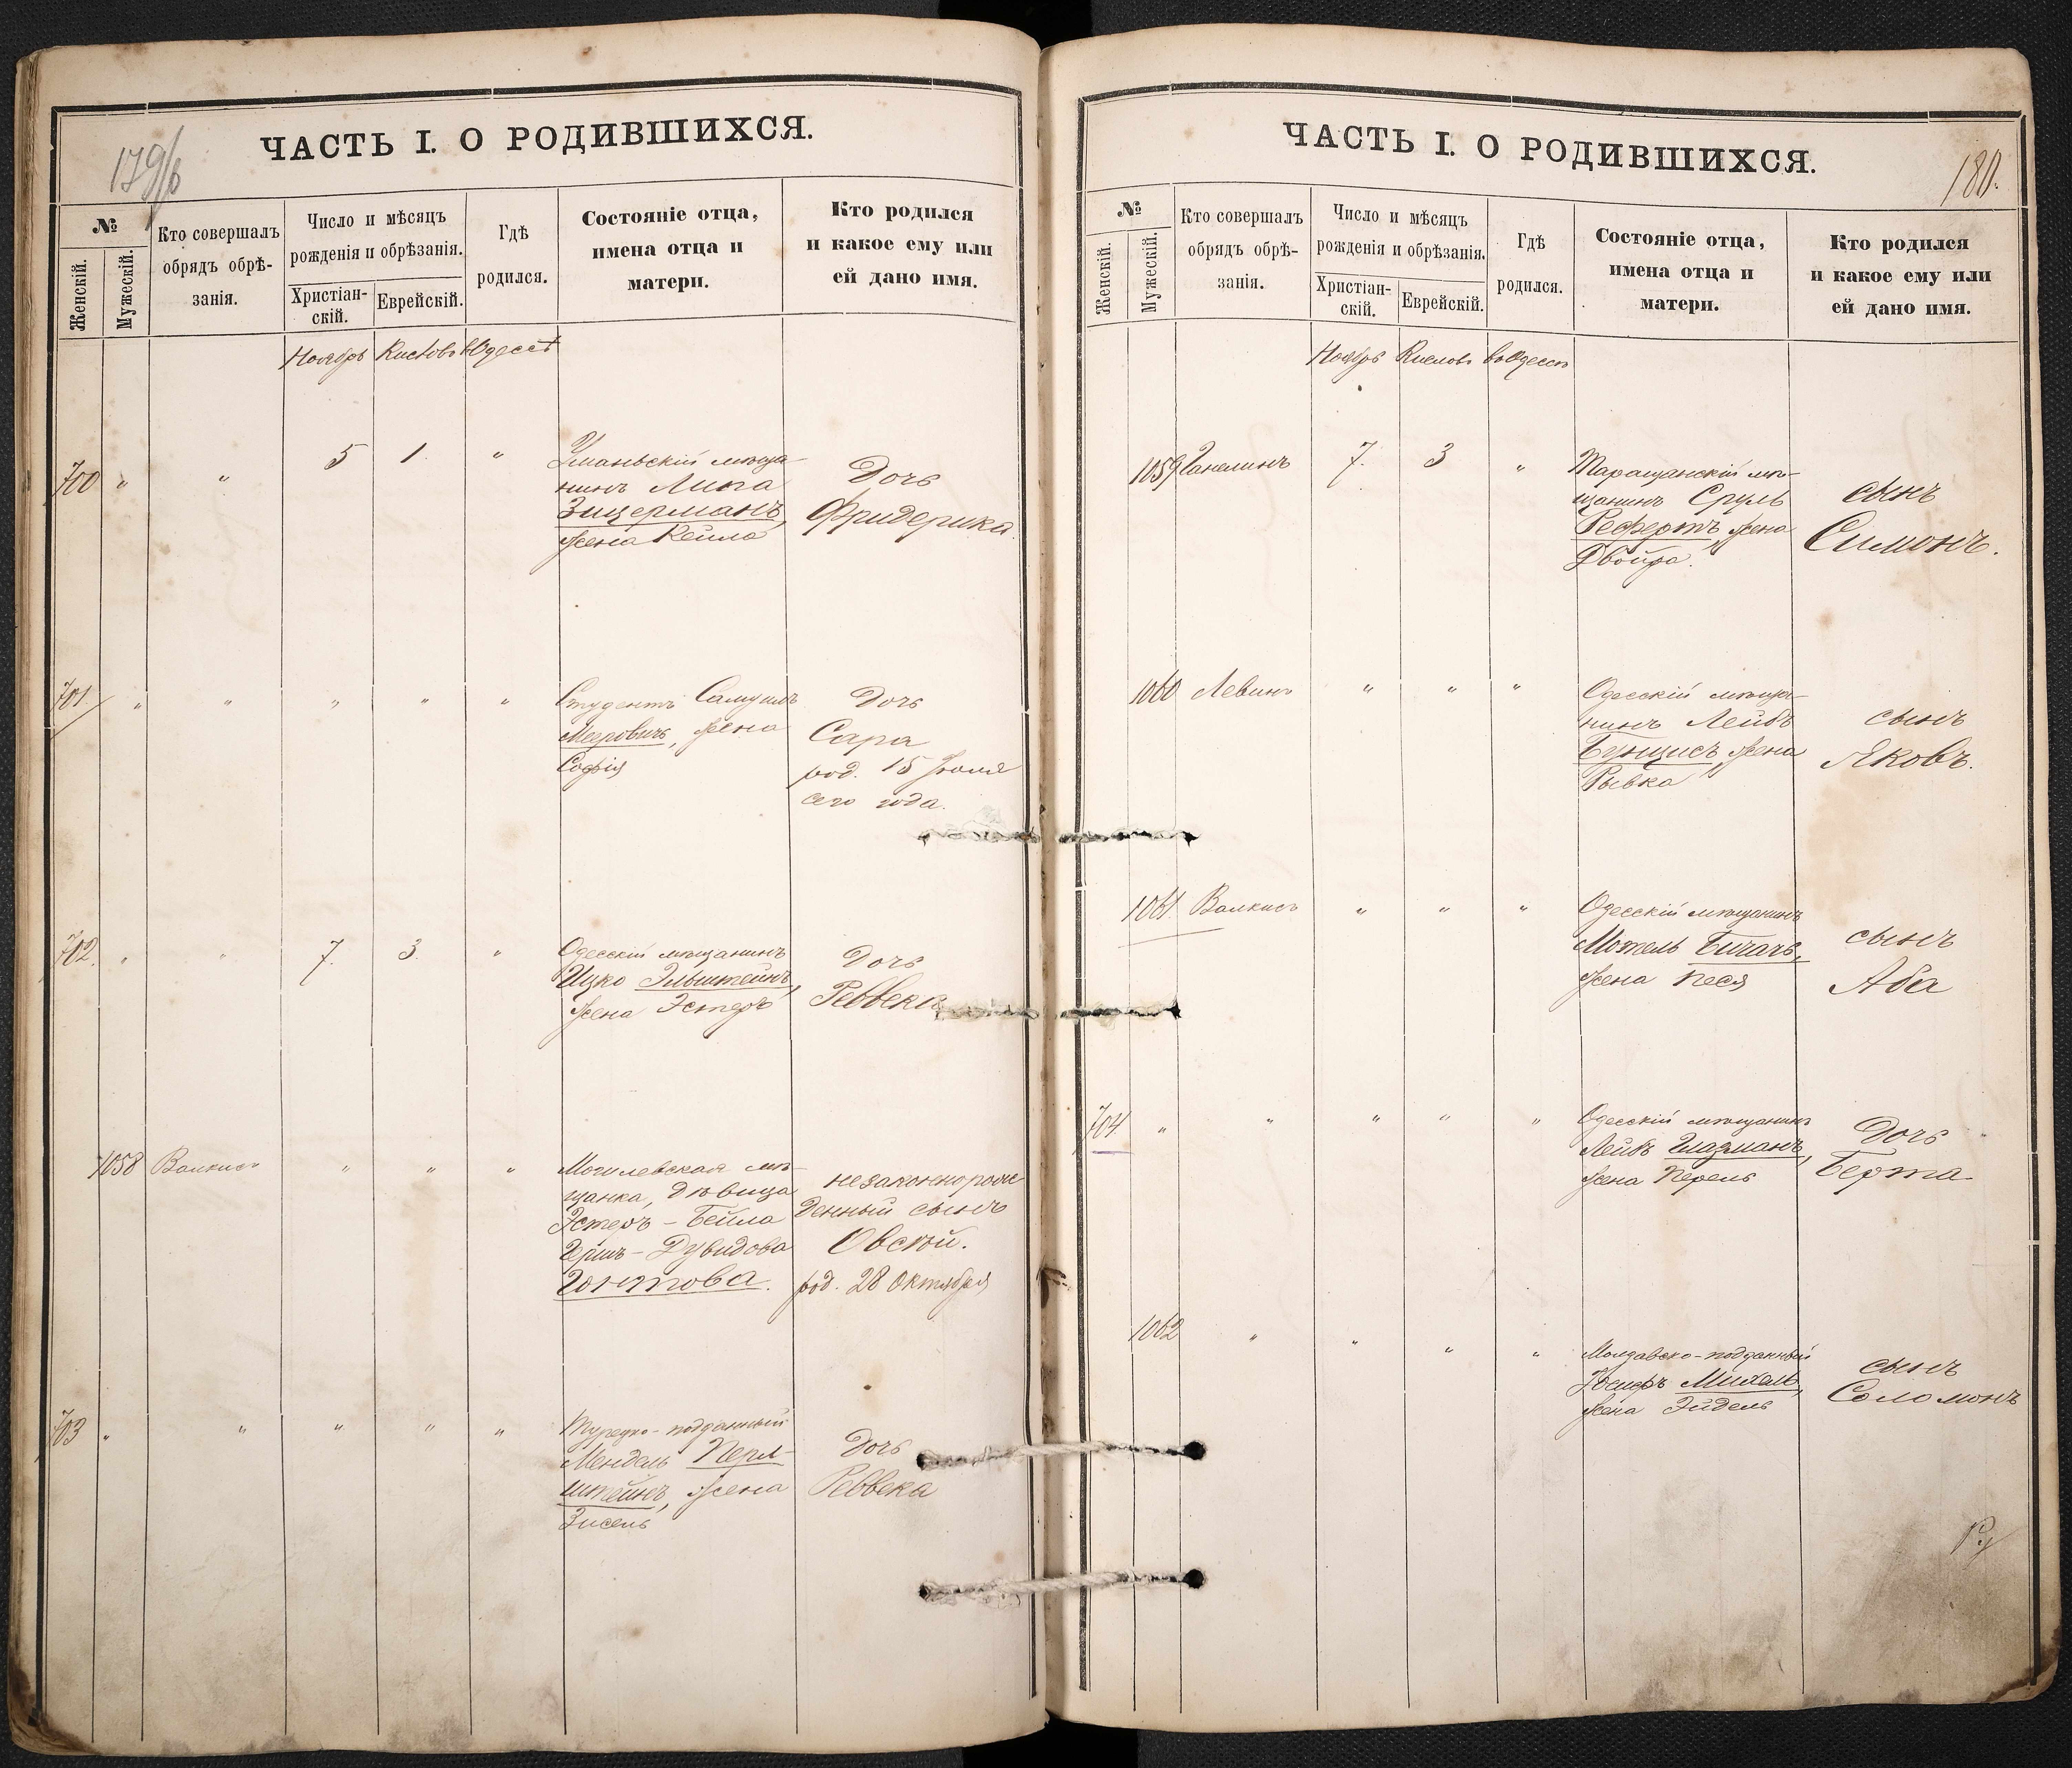 179/б
ЧАСТЬ I. О РОДИВШИХСЯ.
№
Женскій.
Мужескій.
Кто совершалъ
обрядъ обрѣ-
занія.
Число и мѣсяцъ
рожденія и обрѣзанія.
Христіан-
скій.
Еврейскій.
Гдѣ
родился.
Состояніе отца,
имена отца и
матери.
Кто родился
и какое ему или
ей дано имя.
Ноябрь Кислевъ въ Одессѣ
700 " " 5 1. "
Уманьскій мѣща-
нинъ Липа
Зицерманъ,
жена Кейла
Дочь
Фридерика.
701. " " " " "
Студентъ Самуилъ
Мееровичъ, жена
Софія
Дочь
Сара
род. 15 Іюля
сего года.
702. " " 7. 3. "
Одесскій мѣщанинъ
Ицко Эльштейнъ,
жена Эстеръ
Дочь
Реввека
1058 Валкисъ " " "
Могилевская мѣ-
щанка, дѣвица
Эстеръ-Бейла
Гершъ-Дувидова
Гонтова.
незаконнорож
денный сынъ
Овсѣй.
род. 28 Октября
703 " " " " "
Турецко-подданный
Мендель Перл-
штейнъ, жена
Зисель
Дочь
Реввека
180.
ЧАСТЬ I. О РОДИВШИХСЯ.
№
Женскій.
Мужескій.
Кто совершалъ
обрядъ обрѣ-
занія.
Число и мѣсяцъ
рожденія и обрѣзанія.
Христіан-
скій.
Еврейскій.
Гдѣ
родился.
Состояніе отца,
имена отца и
матери.
Кто родился
и какое ему или
ей дано имя.
Ноябрь Кислевъ въ Одессѣ
1059 Ганелинъ 7. 3 "
Таращанскій мѣ-
щанинъ Сруль
Рефертъ, жена
Двойра.
сынъ
Симонъ.
1060 Левинъ " " "
Одесскій мѣща-
нинъ Лейбъ
жена
Рывка
сынъ
Яковъ.
1061 Валкисъ " " "
Одесскій мѣщанинъ
Мотель Бигачъ,
жена Песя
сынъ
Аба
704 " " " " "
Одесскій мѣщанинъ
Лейбъ Глазманъ,
жена Перель
Дочь
Берта
1062 " " " "
Молдавско-подданный
Іосифъ Михель,
жена Эйдель
сынъ
Соломонъ